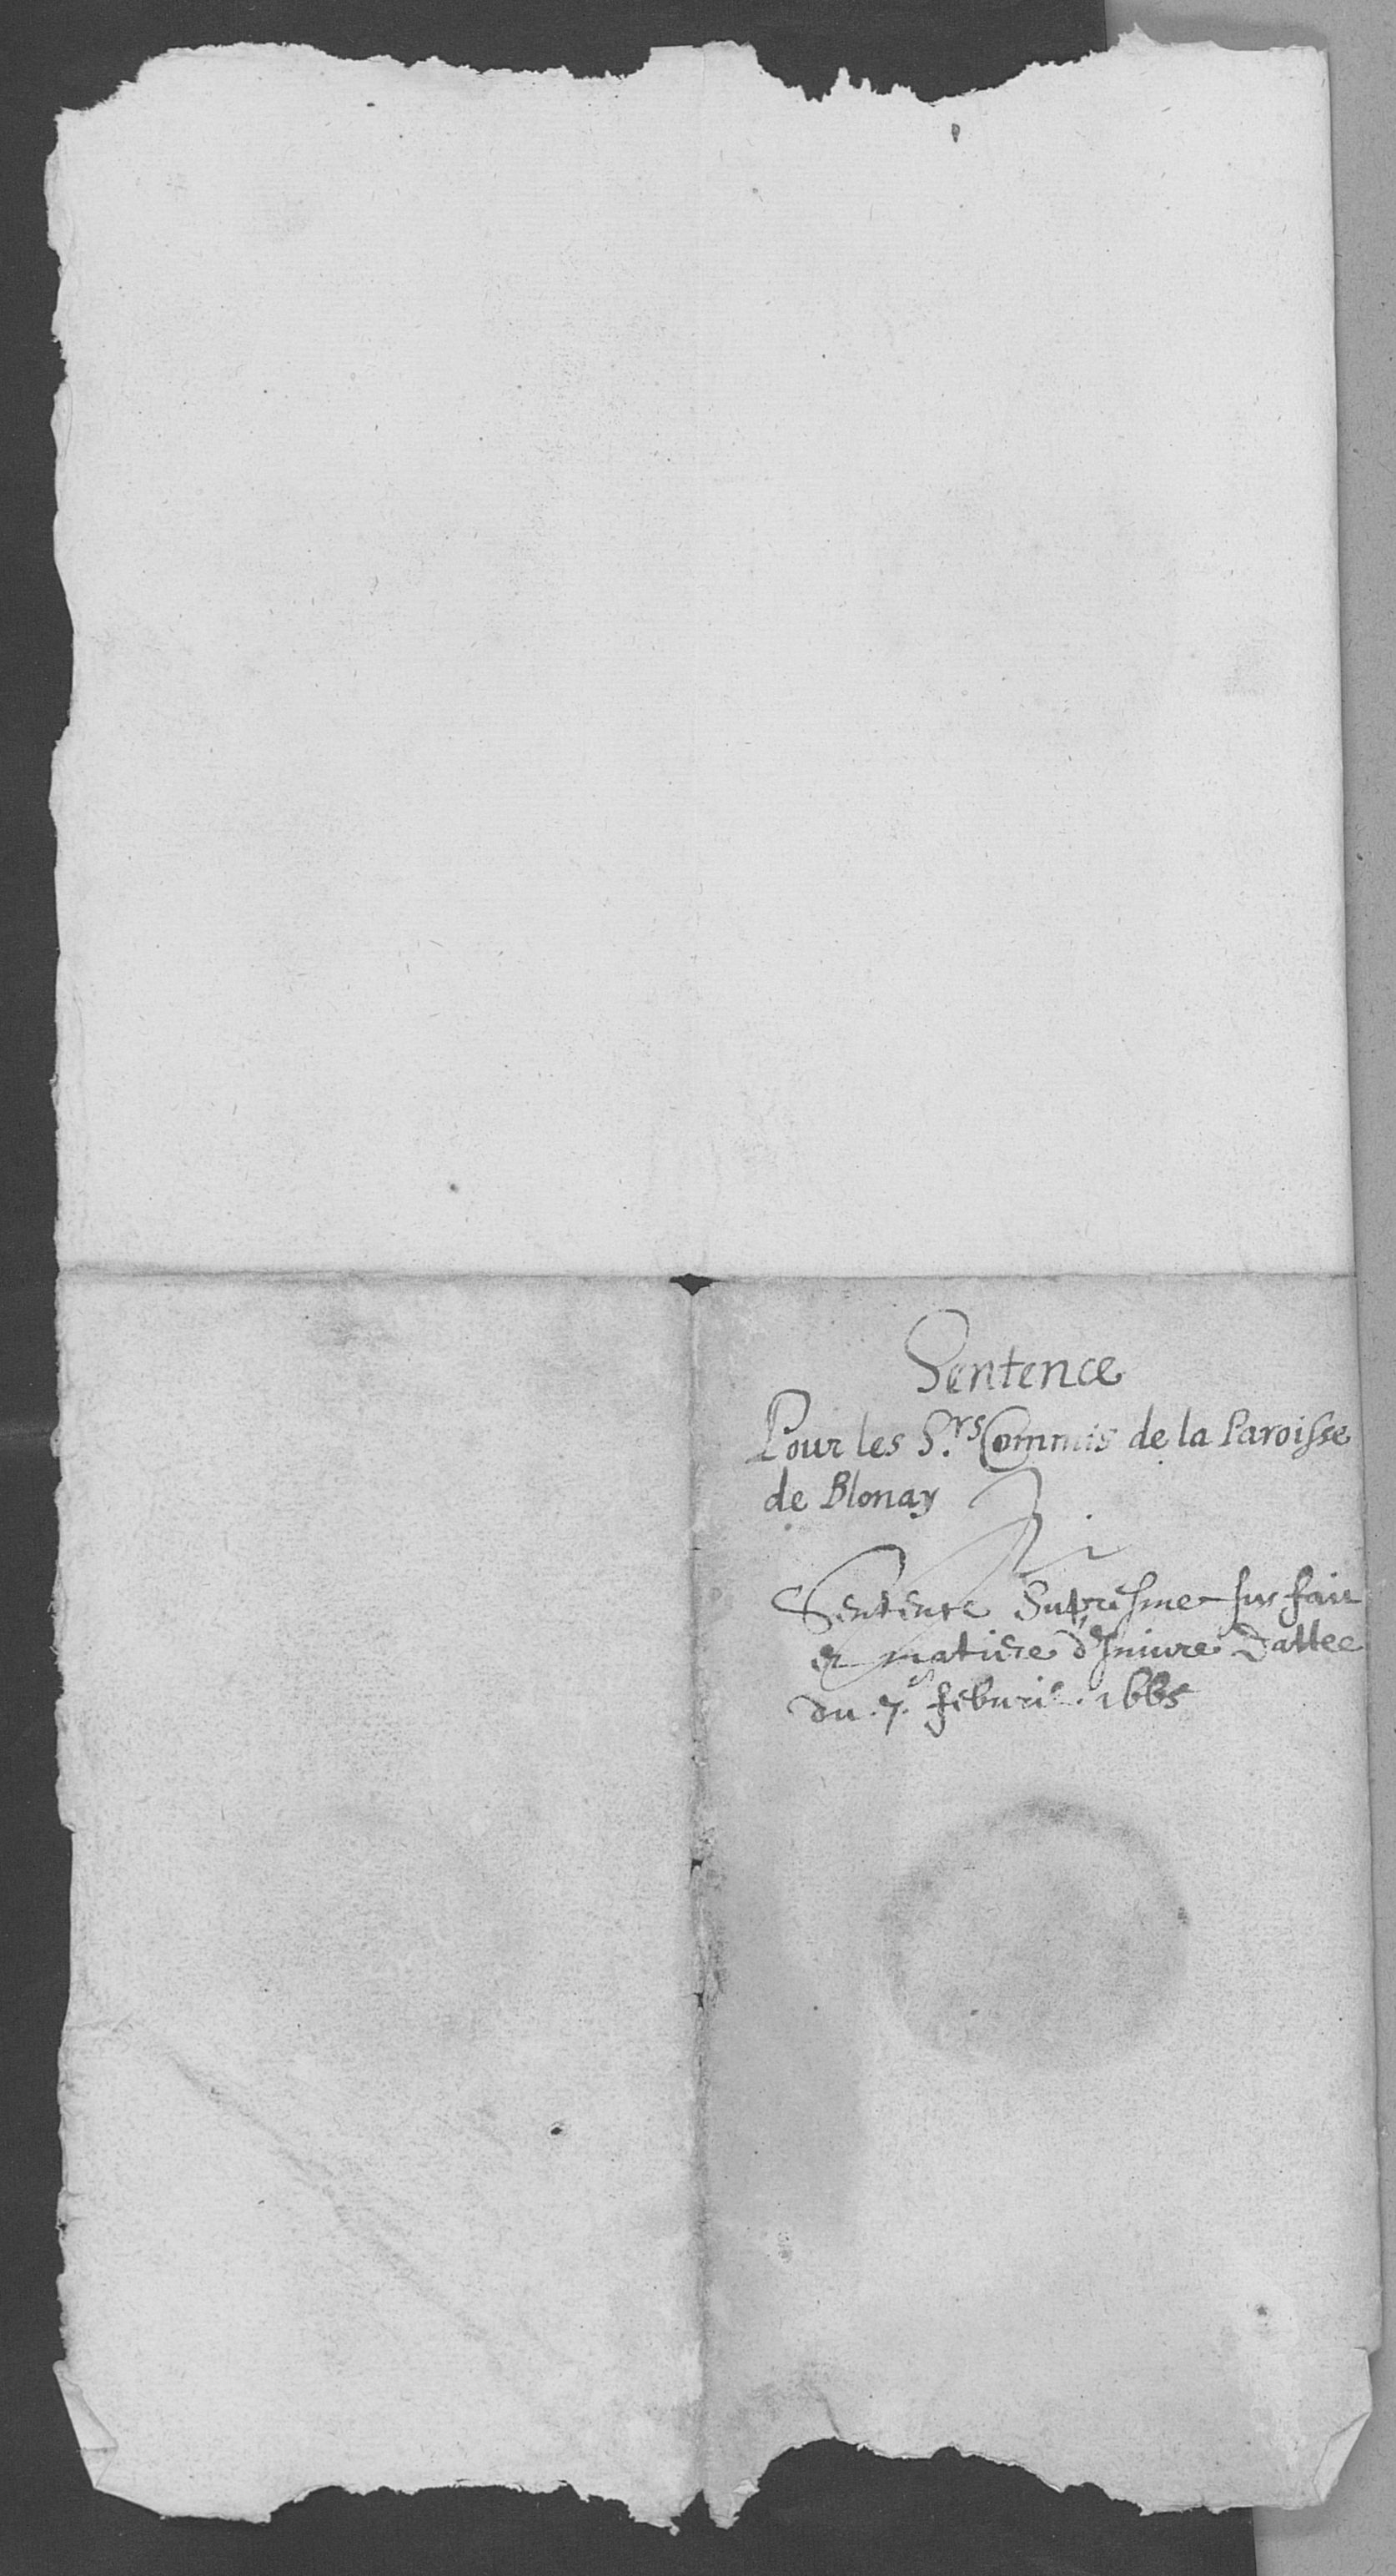 Sentence
Pour les S.rs Commis de la Paroisse
de Blonay
Sentence Supresme sur fait
et matiere d'Iniure Dattee
du .7. febvrie. 1665